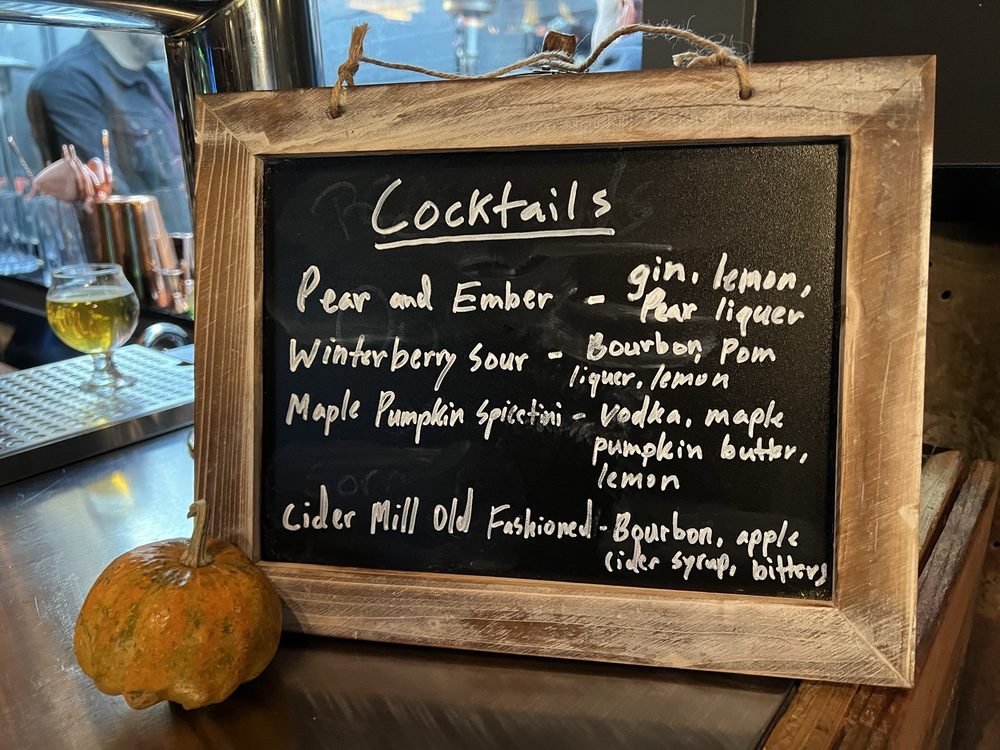 Cocktails
Pear and Ember - gin, lemon,
Pear liquer
Winterberry Sour - Bourbon, Pom
liquer, lemon
Maple Pumpkin Spicetini - vodka, maple
pumpkin butter,
lemon
Cider Mill Old Fashioned - Bourbon, apple
cider syrup, bitters